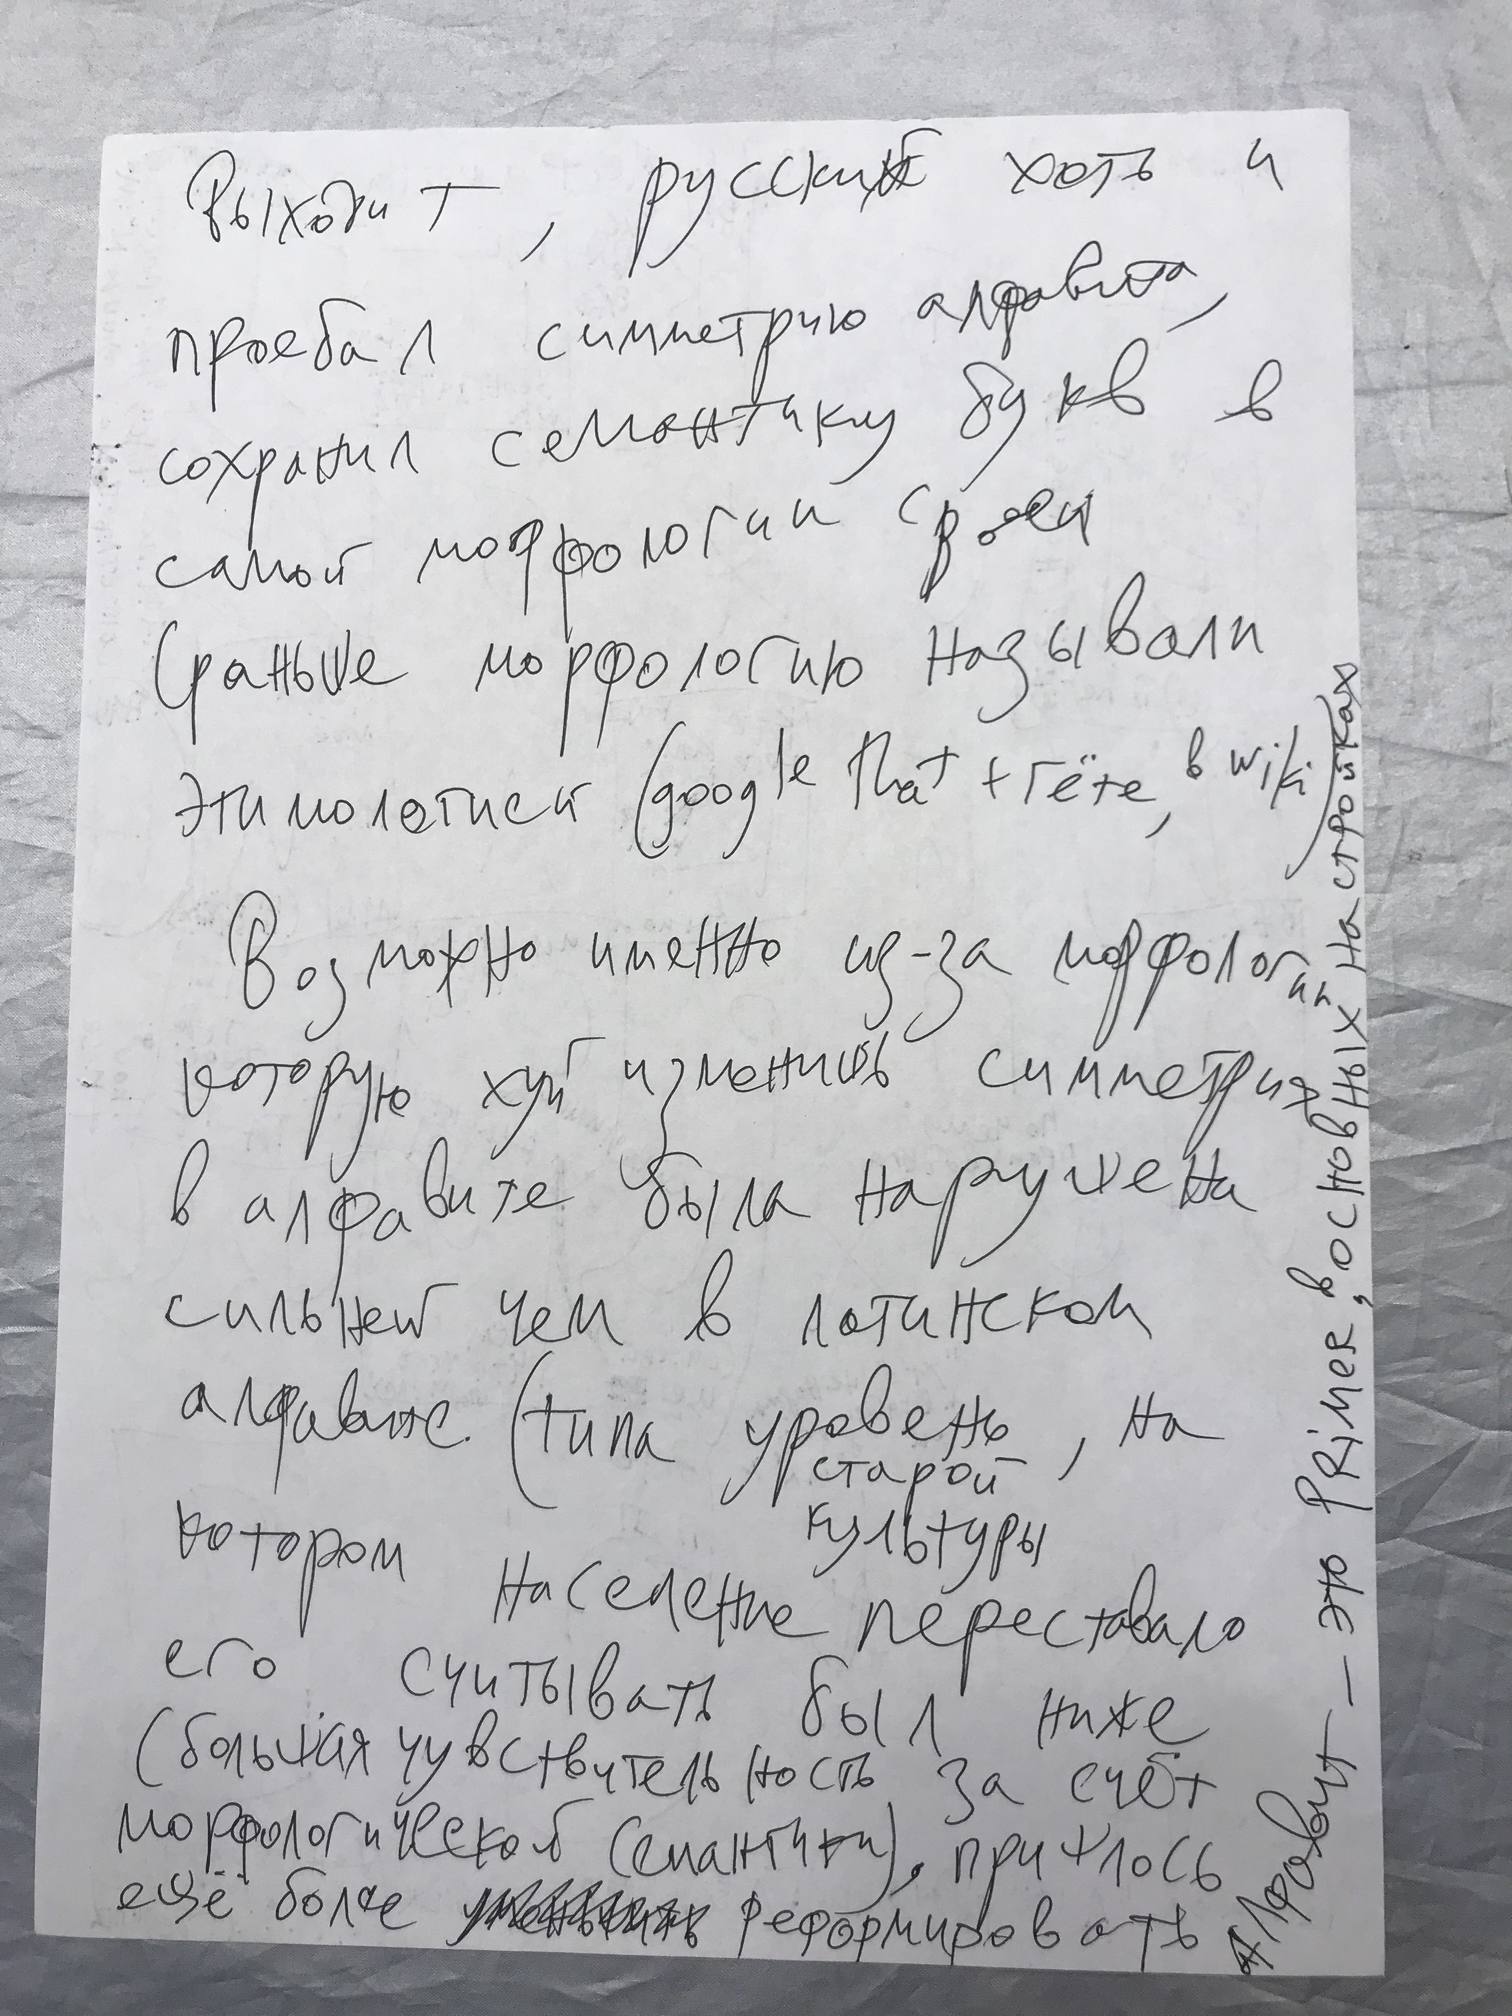 Выходит, русский хоть и
проебал симметрию алфавита,
сохранил семантику букв в
самой морфологии
(раньше морфологию называли
этимологией (google that + Гёте, в wiki)
Возможно именно из-за морфологии
которую хуй изменишь симметрия
в алфавите была нарушена
сильней чем в латинском
алфавите. (типа уровень, на
котором население старой культуры переставало
его считывать был ниже
(большая чувствительность за счёт
морфологической семантики), пришлось
ещё более реформировать
Алфавит – это PRiMER, в основных настройках